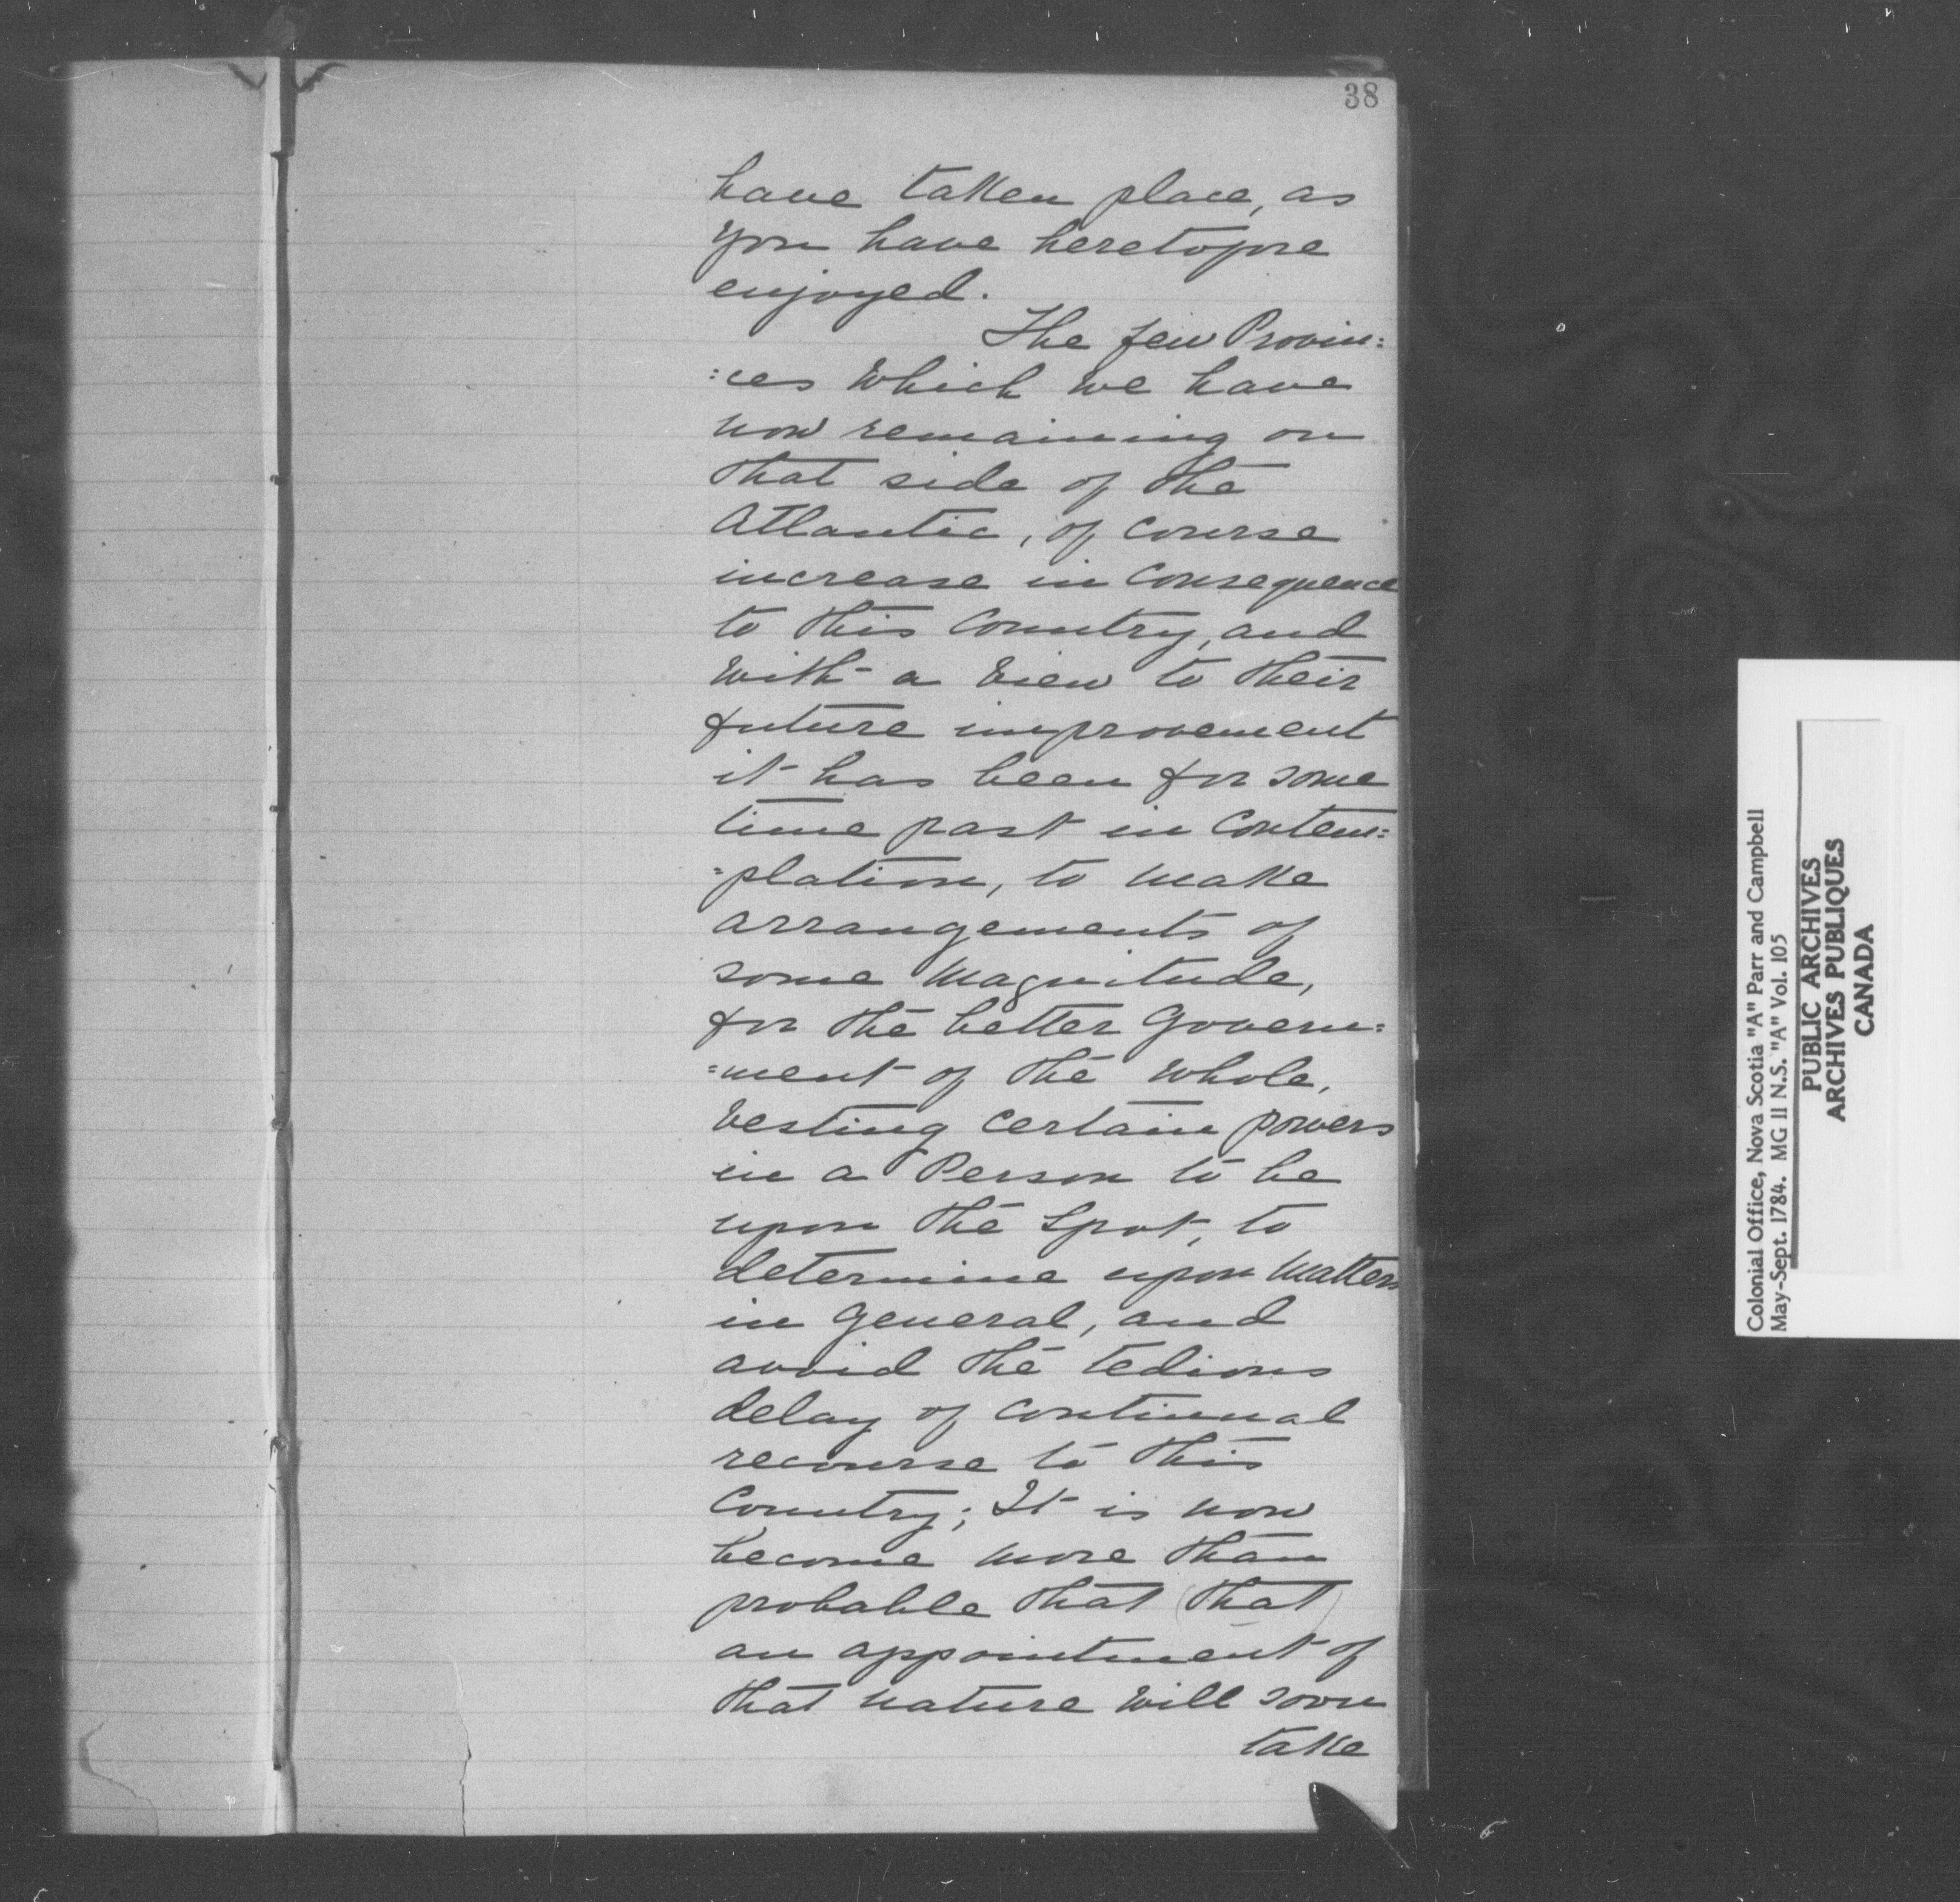 38
have taken place, as
you have heretofore
enjoyed.
The few Provin:
:ces which we have
now remaining on
that side of the
Atlantic, of course
increase in Consequence
to this Country, and
with a View to their
future improvement
it has been for some
time past in Contem:
:plation, to make
arrangements of
some Magnitude,
for the better Govern:
:ment of the whole,
Vesting certain powers
in a Person to be
upon the Spot, to
determine upon Matters
in General, and
avoid the tedious
delay of continual
recourse to this
Country; It is now
become more than
probable that (that)
an appointment of
that nature will soon
take
Colonial Office, Nova Scotia "A" Parr and Campbell
May-Sept. 1784. MG 11 N.S. "A" Vol. 105
PUBLIC ARCHIVES
ARCHIVES PUBLIQUES
CANADA